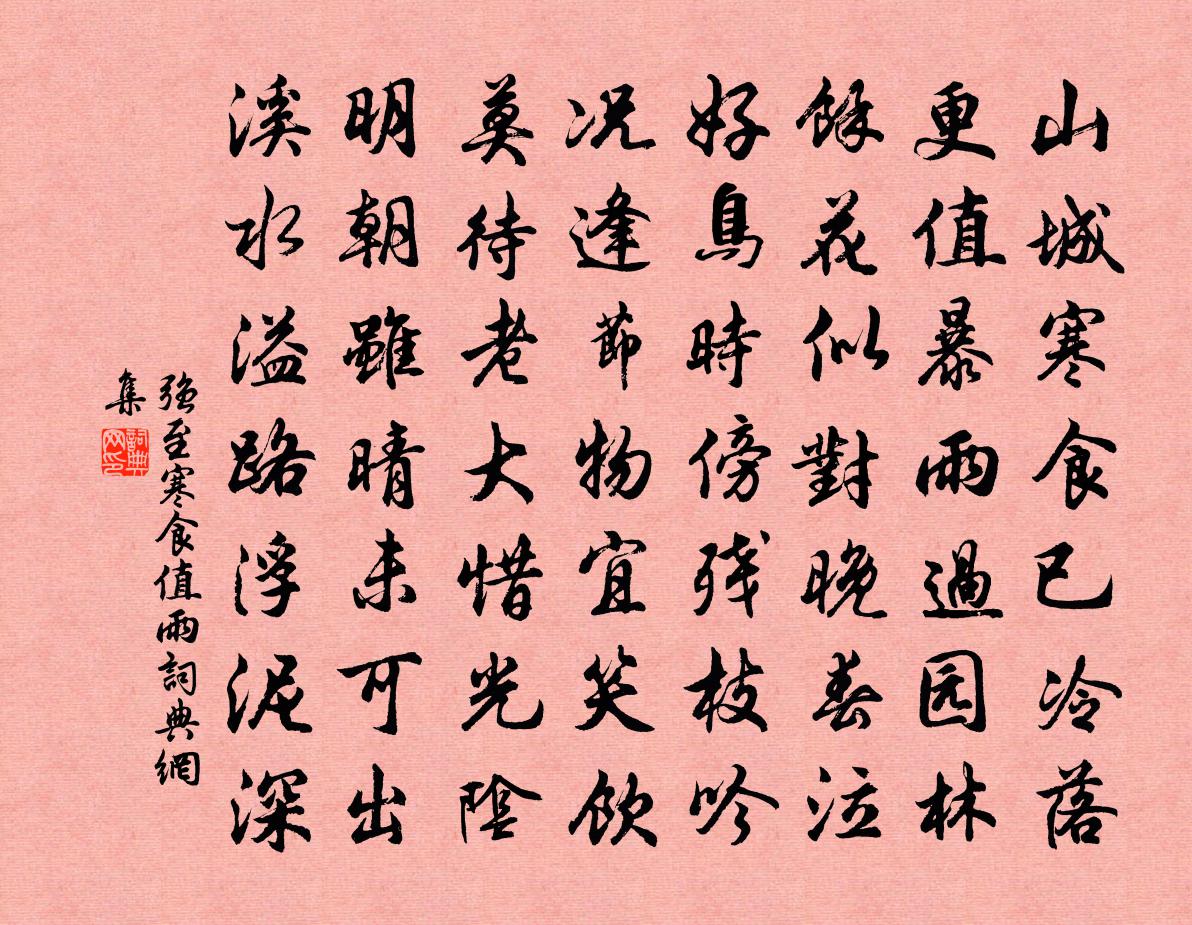 山城寒食已冷落
更值暴雨過园林
餘花似對晚春泣
好鳥時傍残枝吟
况逢節物宜笑飲
莫待老大惜光陰
明朝雖晴未可出
溪水溢路浮泥深
强至寒食值雨詞典網
集
詞典
网印